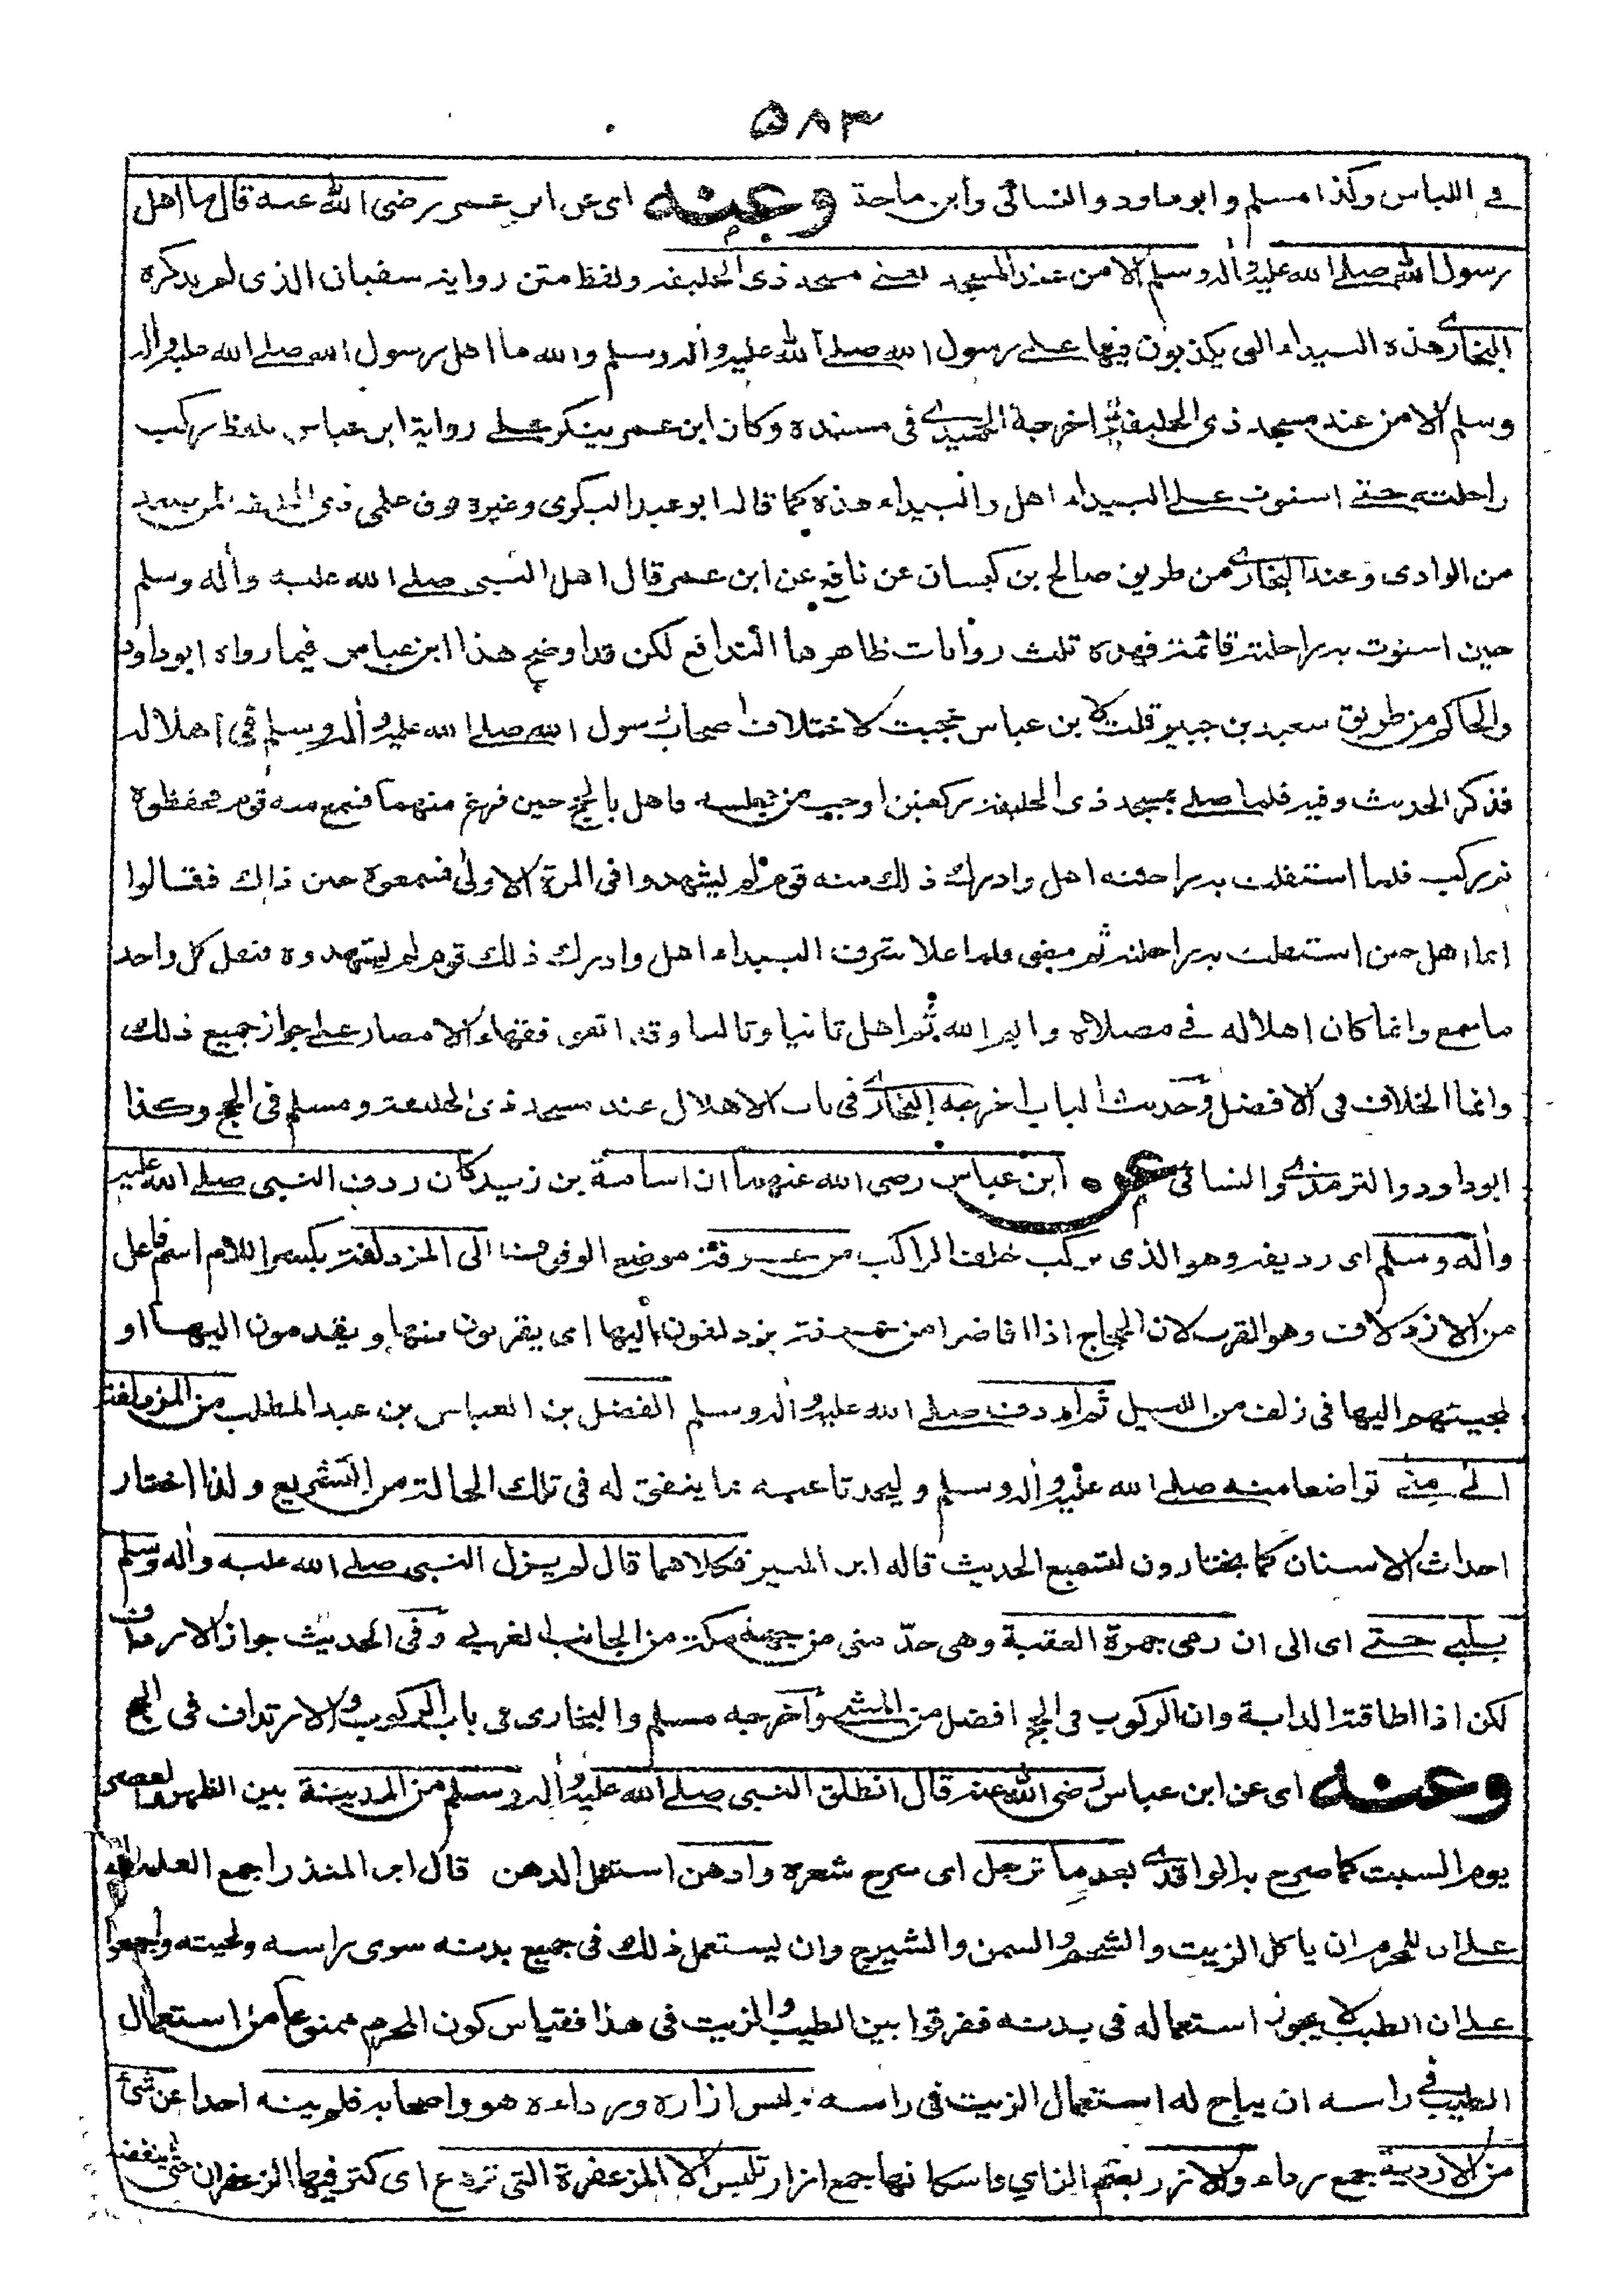 ۵۸۳
في اللباس وكذا مسلم وابو داود والنسائى وابن ماجة وعنه اى عن ابن عمر رضى الله عنه قال ما اهل
رسول الله صلے الله عليه واله وسلم الا من عند المسجد يعنے مسجد ذى الحليفة ولفظ متن رواية سفيان الذى لم يذكره
البخارى هذه البيداء التى يكذبون فيها علے رسول الله صلے الله عليه واله وسلم والله ما اهل رسول الله صلے الله عليه واله
وسلم الا من عند مسجد ذى الحليفة اخرجه الحميدى فى مسنده وكان ابن عمر ينكر علے رواية ابن عباس بلفظ ركب
راحلته حتے استوت علے البيداء اهل والبيداء هذه كما قاله ابو عبيد البكرى وغيره فوق علمى ذى الحليفة لمن صعد
من الوادى وعند البخارى من طريق صالح بن كيسان عن نافع عن ابن عمر قال اهل النبى صلے الله عليه واله وسلم
حين استوت به راحلته قائمة فهذه ثلث روايات ظاهرها التدافع لكن قد اوضح هذا ابن عباس فيما رواه ابو داود
والحاكم من طريق سعيد بن جبير قلت لابن عباس عجبت لاختلاف اصحاب رسول الله صلے الله عليه واله وسلم فى اهلاله
فذكر الحديث وفيه فلما صلے بمسجد ذى الحليفة ركعتين اوجب من مجلسه فاهل بالحج حين فرغ منهما فسمع منه قوم فحفظوه
ثم ركب فلما استقلت به راحلته اهل وادرك ذلك منه قوم لم يشهدوا فى المرة الاولى فسمعوه حين ذاك فقالوا
انما اهل حين استقلت به راحلته ثم مضى فلما علا شرف البيداء اهل وادرك ذلك قوم لم يشهدوه فنقل كل واحد
ما سمع وانما كان اهلاله في مصلاه وايم الله ثم اهل ثانيا وثالثا وقد اتفق فقهاء الامصار علے جواز جميع ذلك
وانما الخلاف فى الافضل وحديث الباب اخرجه البخارى فى باب الاهلال عند مسجد ذى الحليفة ومسلم فى الحج وكذا
ابو داود والترمذى والنسائى عن ابن عباس رضى الله عنهما ان اسامة بن زيد كان ردف النبى صلے الله عليه
واله وسلم اى رديفه وهو الذى يركب خلف الراكب من عرفة موضع الوقوف هنا الى المزدلفة بكسر اللام اسم فاعل
من الازدلاف وهو القرب لان الحجاج اذا افاضوا من عرفة يزدلفون اليها اى يقربون منها ويقدمون اليها او
لمجيئهم اليها فى زلف من الليل ثم اردف صلے الله عليه واله وسلم الفضل بن العباس بن عبد المطلب من المزدلفة
الے منے تواضعا منه صلے الله عليه واله وسلم وليحدثا عنه بما يتفق له فى تلك الحالة من التشريع ولذا اختار
احداث الاسنان كما يختارون لتسميع الحديث قاله ابن المنير فكلاهما قال لم يزل النبى صلے الله عليه واله وسلم
يلبے حتے اى الى ان رمى جمرة العقبة وهى حدّ منى من جهة مكة من الجانب الغربے وفى الحديث جواز الارداف
لكن اذا اطاقته الدابة وان الركوب فى الحج افضل من المشى واخرجه مسلم والبخارى فى باب الركوب والارتداف فى الحج
وعنه اى عن ابن عباس رضى الله عنه قال انطلق النبى صلے الله عليه واله وسلم من المدينة بين الظهر والعصر
يوم السبت كما صرح به الواقدى بعد ما ترجل اى سرح شعره وادهن استعمل الدهن قال ابن المنذر اجمع العلماء
علے ان للمحرم ان ياكل الزيت والشحم والسمن والشيرج وان يستعمل ذلك فى جميع بدنه سوى راسه ولحيته واجمعوا
علے ان الطيب لا يجوز استعماله فى بدنه ففرقوا بين الطيب والزيت فى هذا فقياس كون المحرم ممنوعا من استعمال
الطيب في راسه ان يباح له استعمال الزيت فى راسه ولبس ازاره ورداءه هو واصحابه فلم ينه احدا عن شئ
من الاردية جمع رداء والازر بضم الزاي واسكانها جمع ازار تلبس الا المزعفرة التى تردع اى كثر فيها الزعفران حتى ينفضه